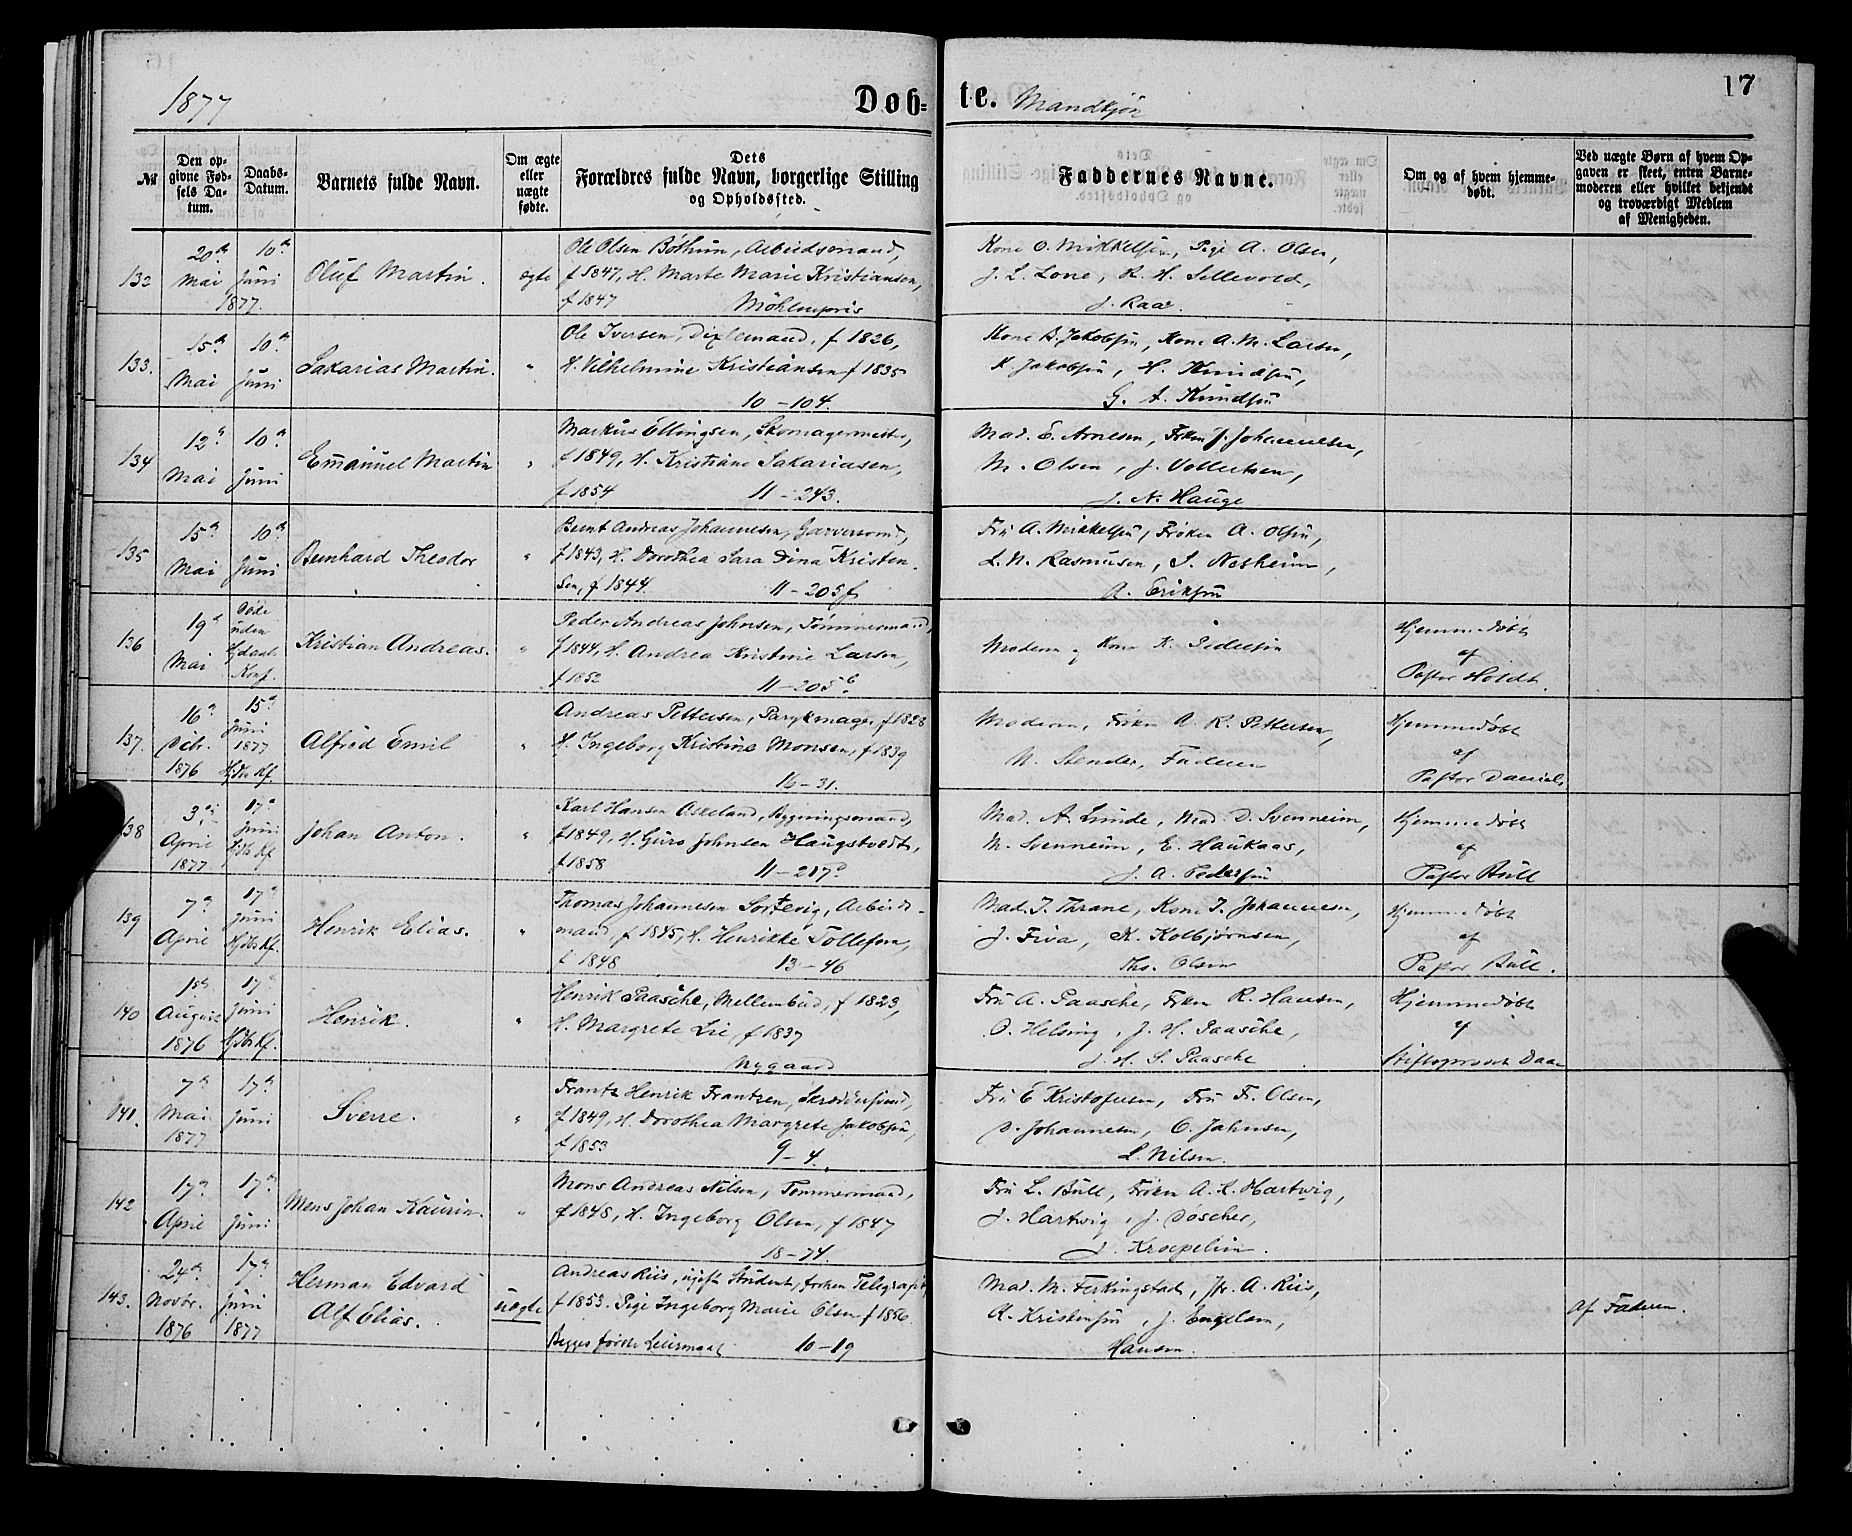 1877
Døb-
te. Mandkjøn
17
№
Den opgivne Fødsels Datum.
Daabs-Datum.
Barnets fulde Navn.
Om ægte eller uægte fødte.
Dets Forældres fulde Navn, borgerlige Stilling og Opholdssted.
Faddernes Navne.
Om og af hvem hjemmedøbt.
Ved uægte Børn af hvem Opgaven er skeet, enten Barnemoderen eller hvilket bekjendt og troværdigt Medlem af Menigheden.
132 20de Mai 10de Juni 1877. Oluf Martin. ægte
Ole Olsen Bøthun, Arbeidsmand,
f 1847, H. Marte Marie Kristiansen,
f 1847 Möhlenpris
Kone O. Mikkelsen, Pige A. Olsen,
J. L. Lone, R. H. Sellevold,
J. Raae.
133. 15de Mai 10de Juni Sakarias Martin. "
Ole Iversen, Dixlemand, f 1826,
H. Vilhelmine Kristiansen f 1835
10 - 104.
Kone B. Jakobsen, Kone A. M. Larsen,
K. Jakobsen, H. Knudsen,
G. A. Knudsen
134 12te Mai 10de Juni Emanuel Martin "
Markus Ellingsen, Skomagermester,
f 1849, H. Kristiane Sakariasen,
f 1854 11 - 243.
Mad. E. Arnesen, Frøken J. Johannesen,
M. Olsen, J. Vollertsen,
J. N. Hauge
135 15de Mai 10de Juni Bernhard Theodor "
Bernt Andreas Johannesen, Garversvend,
f 1843, H. Dorothea Sara Dina Kristen-
sen, f 1844. 11 - 205f
Fru A. Mikkelsen, Frøken A. Olsen,
L. N. Rasmusen, S. Nesheim,
A. Eriksen
136 19de Mai Døde uden Hjdaabs Konf. Kristian Andreas. "
Peder Andreas Johnsen, Tømmermand,
f 1844, H. Andrea Kristine Larsen,
f 1852 11 - 205b.
Moderen, Kone K. Pedersen
Hjemmedøbt
af
Pastor Holdt.
137. 16de Debr. 1876 15de Juni 1877 Hjdbs Kf. Alfred Emil "
Andreas Pettersen, Parykmager f 1828
H. Ingeborg Kristine Monsen, f 1839
16 - 31.
Moderen, Frøken A. K. Pettersen,
N. Stender, Faderen
Hjemmedøbt
af
Pastor Daniels
138 3die April 1877 17de Juni Hjdbs Kf Johan Anton. "
Karl Hansen Askeland, Bygningsmand,
f 1849, H. Guro Johnsen Haugstvedt,
f 1858 11 - 217d
Mad. A. Lunde, Mad. D. Svenneim,
M. Svenneim, E. Haukaas,
J. A. Pedersen
Hjemmedøbt
af
Pastor Bull
139 7de April 17de Juni Hjdbs Kf. Henrik Elias. "
Thomas Johannesen Sortevig, Arbeids-
mand, f 1845, H. Henrikke Tollefsen,
f 1848 13 - 46
Mad. J. Thrane, Kone J. Johannesen,
J. Fiva, K. Kolbjørnsen,
Ths. Olsen
Hjemmedøbt
af
Pastor Bull.
140 1ste August 1876 17de Juni Hjdbs Kf. Henrik. "
Henrik Paasche, f 1823,
H. Margrete Lie, f 1837
Nygaard
Fru A. Paasche, Frøken R. Hansen,
O. Helsing, J. H. Paasche,
J. H. S. Paasche
Hjemmedøbt
af
Stiftsprovst Daae
141. 7de Mai 1877 17de Juni Sverre. "
Frantz Henrik Frantzen, Skræddersvend,
f 1849, H. Dorothea Margrete Jakobsen,
f 1853 9 - 4.
Fru E Kristofersen, Fru Fr. Olsen,
D. Johannesen, C. Jahnsen,
L. Nilsen.
142 17de April 17de Juni Mons Johan Kaurin. "
Mons Andreas Nilsen, Tømmermand,
f 1848, H. Ingeborg Olsen, f 1847
18 - 74.
Fru L. Bull, Frøken A. K. Hartwig,
J. Hartwig, J. Döscher,
J. Kroepelin.
143. 24de Novbr. 1876 17de Juni 1877 Herman Edvard
Alf Elias. uægte
Andreas Riis, ugift Student, Telegrafist
f 1853. Pige Ingeborg Marie Olsen f 1856.
Begges første Leiermaal 10 - 19
Mad. M. Ferkingstad, Jfr. A. Riis,
A. Kristensen, J. Engelsen,
Hansen.
Af Faderen.